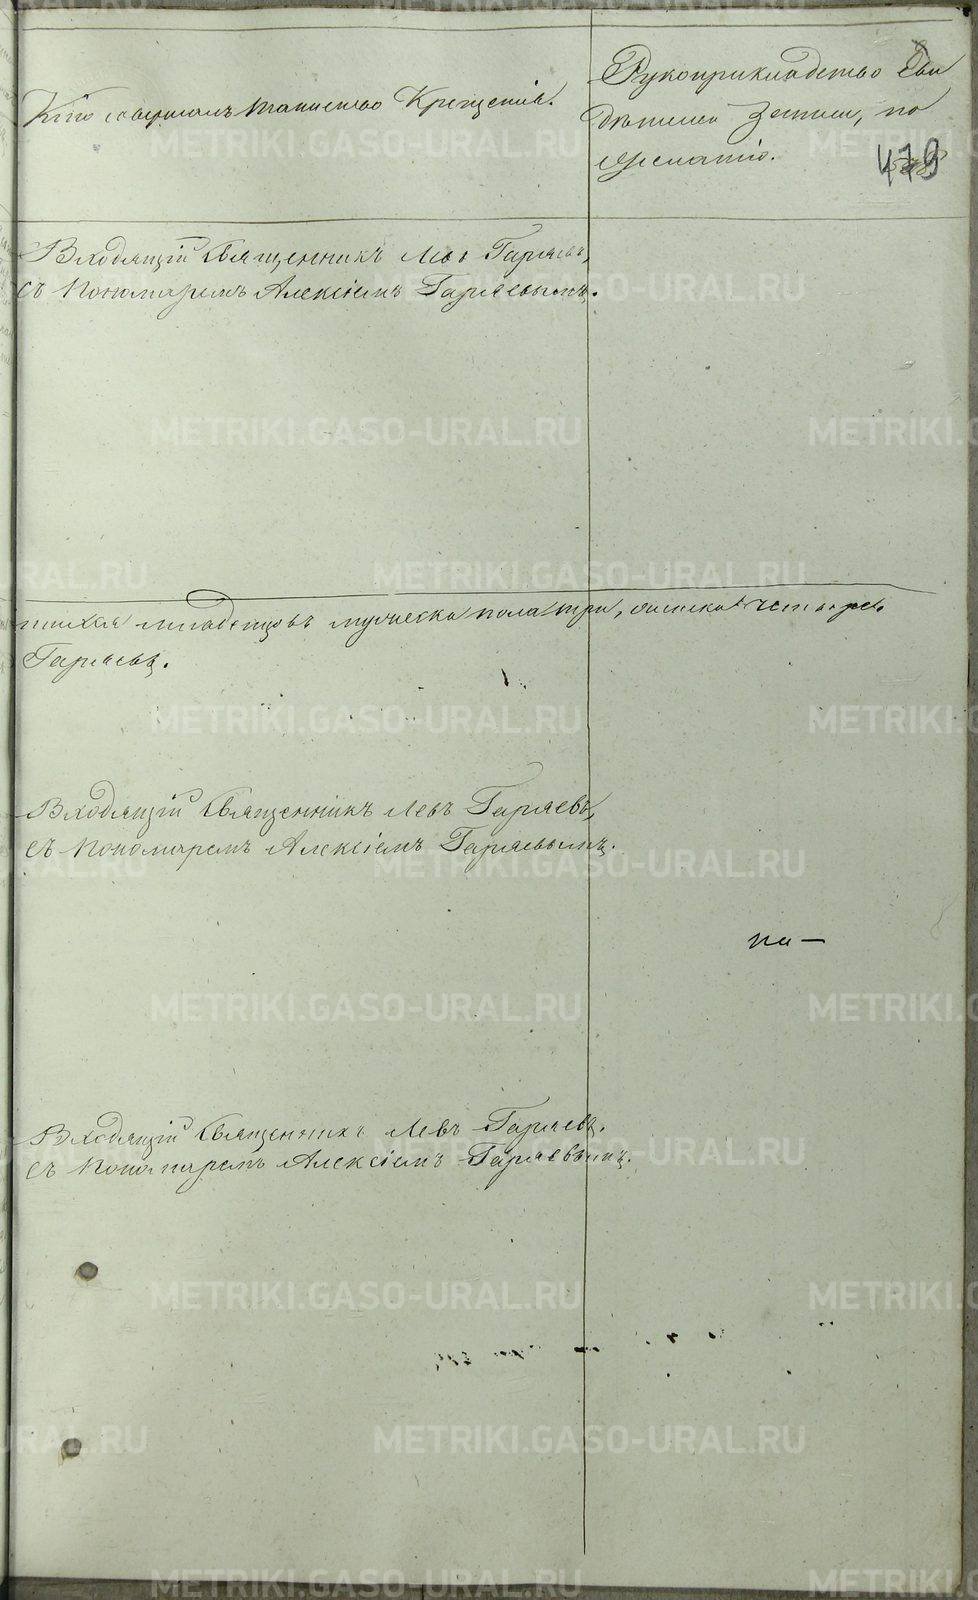 Кто совершалъ таинство Крещенія.
Рукоприкладство сви
дѣтелей записи, по
желанію.
479
Входящій Священникъ Левъ Гаряевъ,
съ Пономаремъ Алексіемъ Гаряевымъ.
младенцовъ мужеска пола три, женска четыре.
Гаряевъ.
Входящій Священникъ Левъ Гаряевъ,
съ Пономаремъ Алексіемъ Гаряевымъ.
па—
Входящій Священникъ Левъ Гаряевъ.
съ Пономаремъ Алексіемъ Гаряевымъ.
METRIKI.GASO-URAL.RU